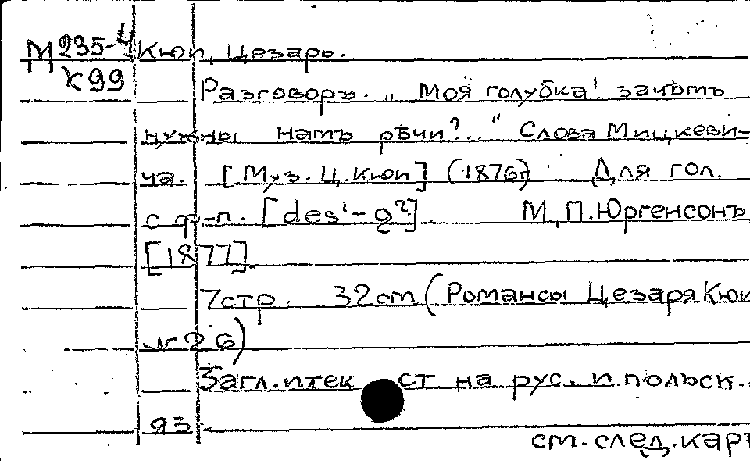 М 235-4 Кюи, Цезарь.
К99
Разговоръ. „Моя голубка! зачѣмъ
нужны намъ рѣчи?.." Слова Мицкеви-
ча. [Муз. Ц. Кюи] (1876г) Для гол.
с ф-п. [des¹-g²]. М., П. Юргенсонъ,
[1877].
7стр. 32cm (Романсы Цезаря Кюи
№26)
Загл. и текст на рус. и польск.
яз. см. след. карт